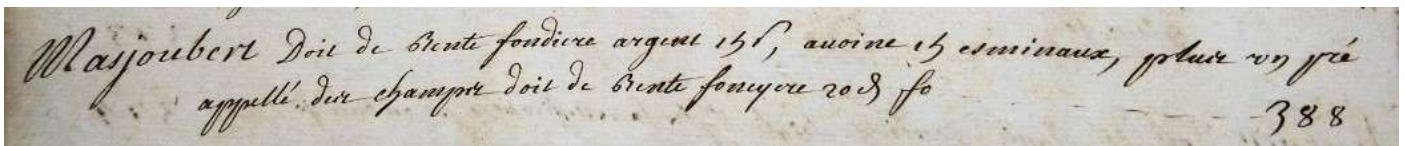 Masjoubert Doit de Rente fondiere argent 15 s, avoine 15 esminaux, plus un pré
appellé des champs doit de Rente fonciere 20 d fo
388